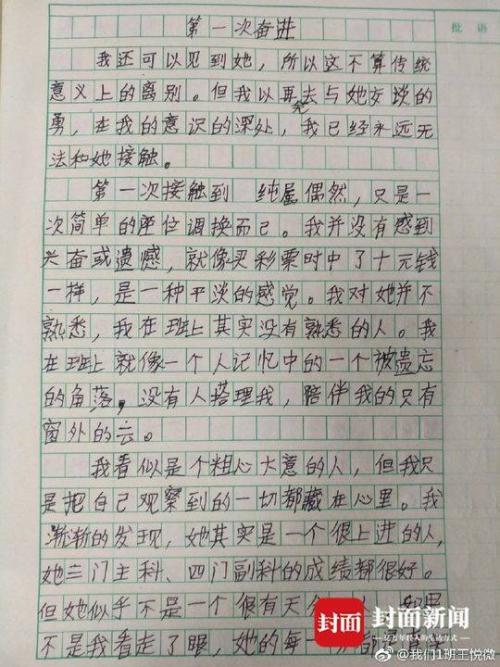 批语
第一次奋进
我还可以见到她，所以这不算传统
意义上的离别。但我以再去与她交谈的
勇，在我的意识的深处，我已经永远无
法和她接触。
第一次接触到 纯属偶然，只是一
次简单的座位调换而已。我并没有感到
兴奋或遗憾，就像买彩票时中了十元钱
一样，是一种平淡的感觉。我对她并不
熟悉，我在班上其实没有熟悉的人。我
在班上就像一个人记忆中的一个被遗忘
的角落，没有人搭理我，陪伴我的只有
窗外的云。
我看似是个粗心大意的人，但我只
是把自己观察到的一切都藏在心里。我
渐渐的发现，她其实是一个很上进的人，
她三门主科、四门副科的成绩都很好。
但她似乎不是一个很有天
不是我看走了眼，她的每
封面 封面新闻
@我们1班王悦微